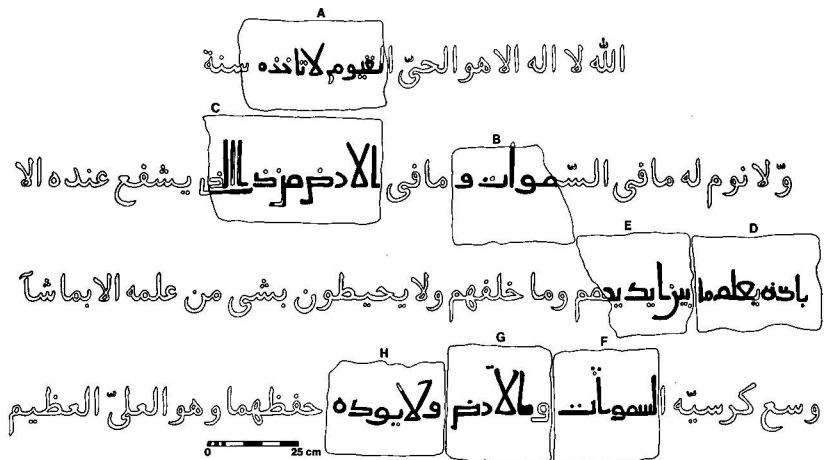 A
الله لا اله الا هو الحيّ القيوم لا تاخذه سنة
C B
وّلا نوم له مافى السّموات و مافى الارض من ذا الذى يشفع عنده الا
E D
باذنه يعلم ما بين ايديهم وما خلفهم ولا يحيطون بشى من علمه الا بما شآ
H G F
وسع كرسيّه السموات والارض ولا يوده حفظهما وهو العلىّ العظيم
0 25 cm